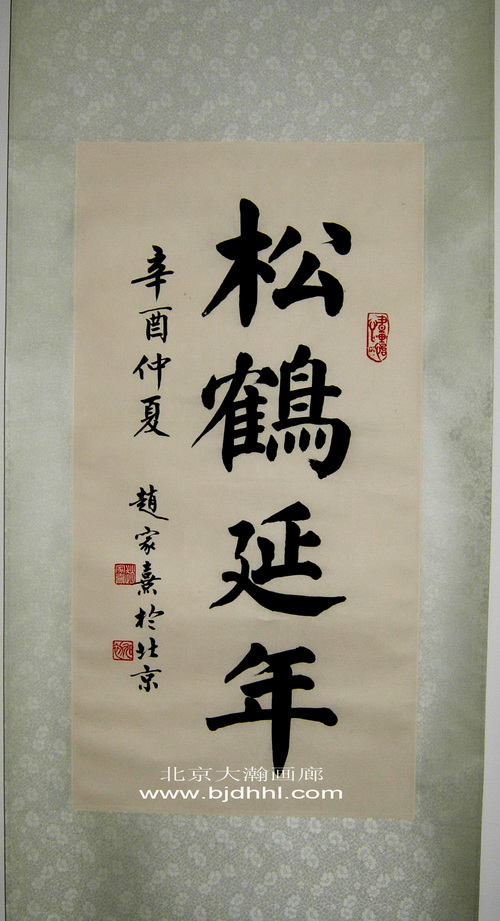 松鶴延年
辛酉仲夏 趙家熹於北京
北京大瀚画廊
www.bjdhhl.com